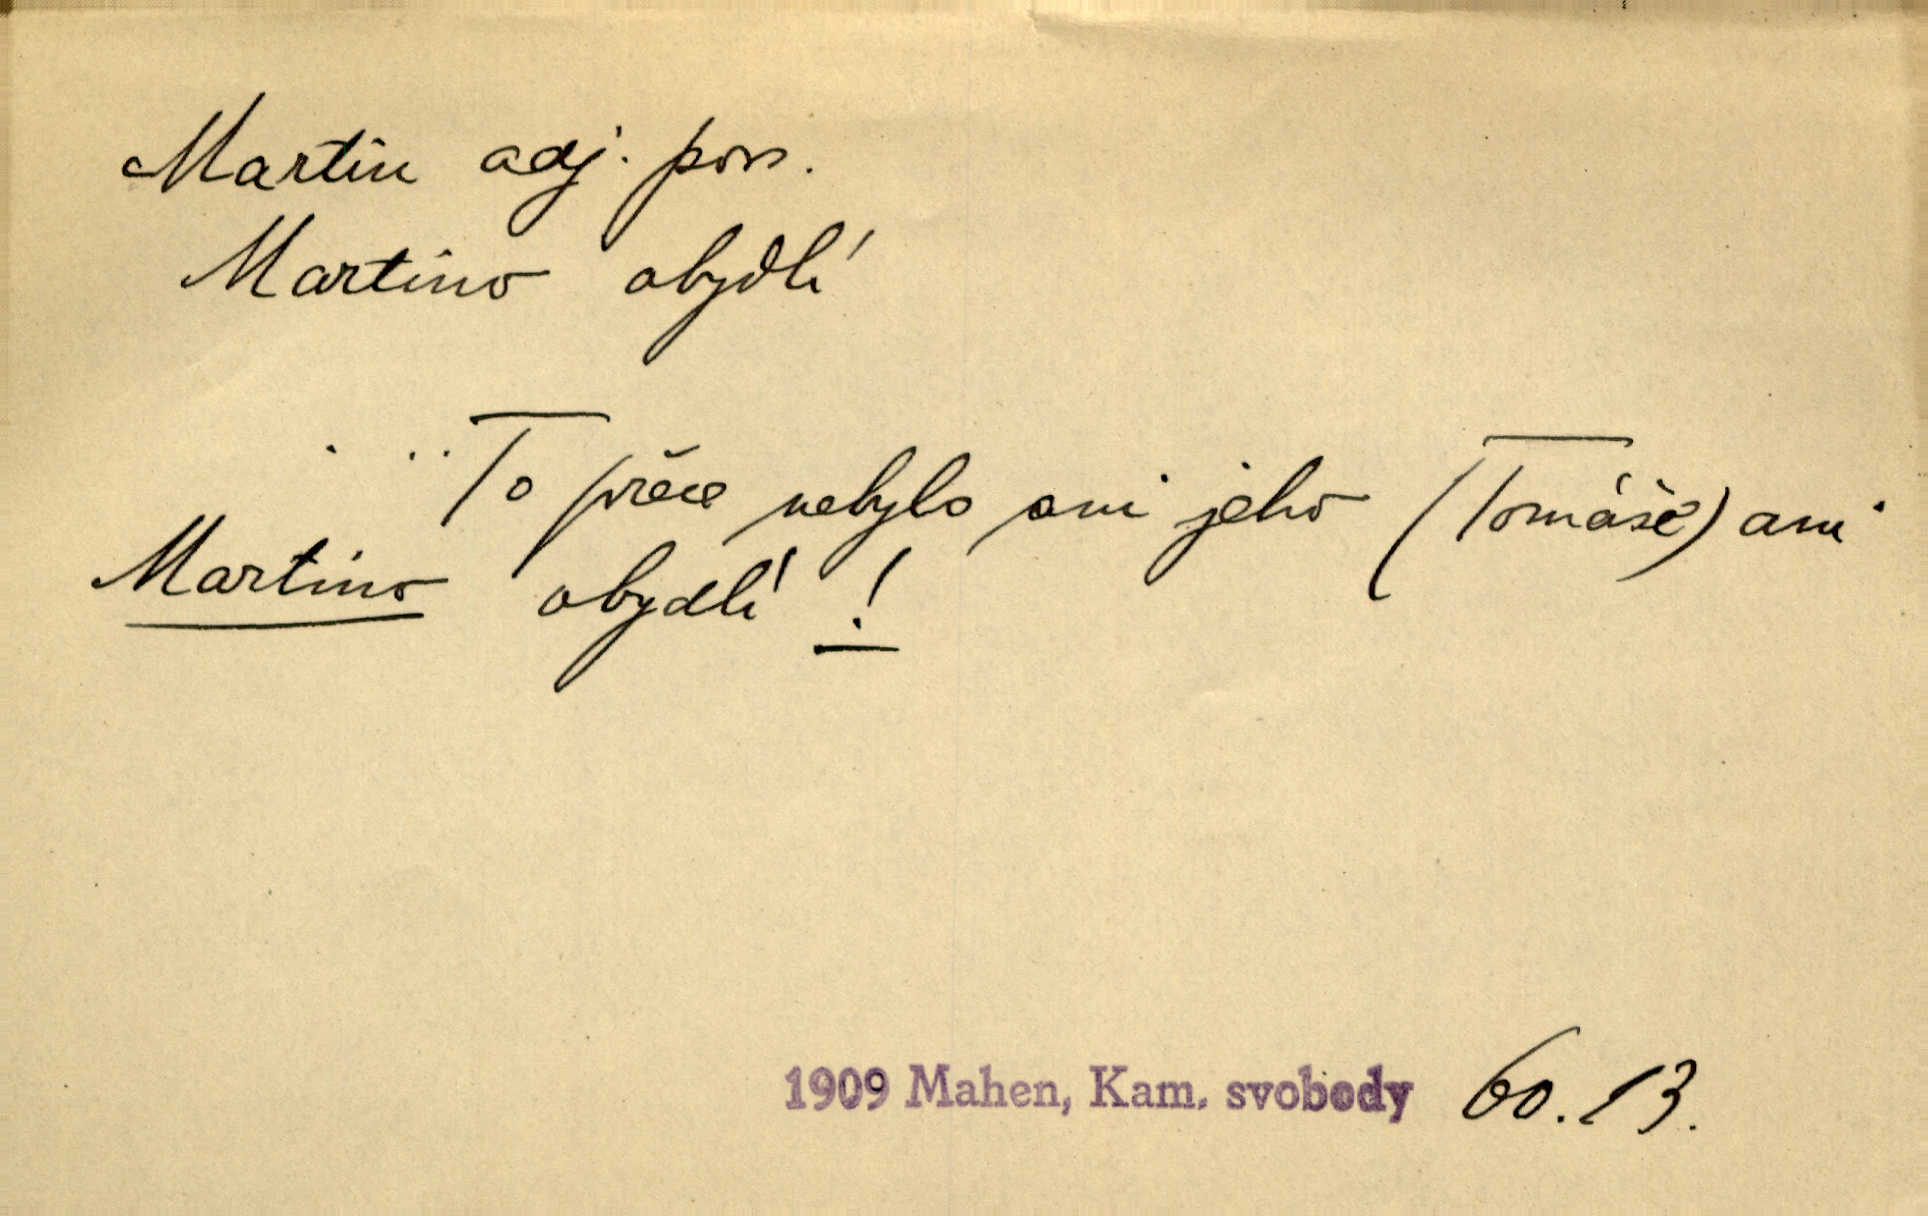 Martin adj. poss.
Martino obydlí
... To přece nebylo ani jeho (Tomáše) ani
Martino obydlí!
1909 Mahen, Kam. svobody 60.13.